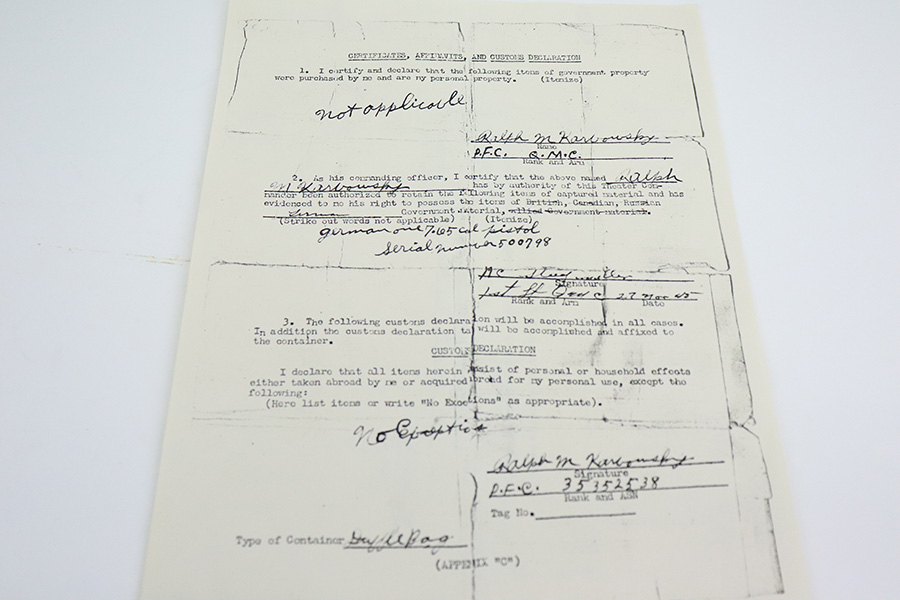 CERTIFICATES, AFFIDAVITS, AND CUSTOMS DECLARATION
1. I certify and declare that the following items of government property
were purchased by me and are my personal property. (Itemize)
not applicable
Ralph M Karbowsky
Name
P.F.C. Q.M.C.
Rank and Arm
2. As his commanding officer, I certify that the above named Ralph
M Karbowsky has by authority of this Theater Com-
mander been authorized to retain the following items of captured material and has
evidenced to me his right to possess the items of British, Canadian, Russian
German Government material, allied Government material.
(Strike out words not applicable) (Itemize)
german one 7.65 cal pistol
Serial number 500798
Signature
1st Lt QMC 27 Nov 45
Rank and Arm Date
3. The following customs declaration will be accomplished in all cases.
In addition the customs declaration ta will be accomplished and affixed to
the container.
CUSTOM DECLARATION
I declare that all items herein consist of personal or household effects
either taken abroad by me or acquired abroad for my personal use, except the
following:
(Here list items or write "No Exections" as appropriate).
No
Ralph M Karbowsky
Signature
P.F.C. 35352538
Rank and ASN
Tag No.
Type of Container Duffle Bag
(APPENIX "C")